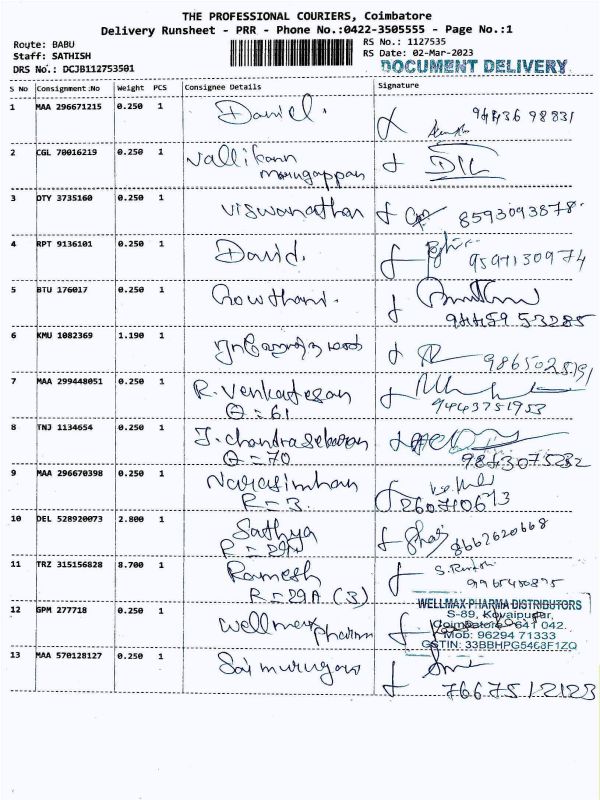 THE PROFESSIONAL COURIERS, Coimbatore
Delivery Runsheet - PRR - Phone No.:0422-3505555 - Page No.:1
Route: BABU
Staff: SATHISH
DRS No.: DCJB112753501
RS No.: 1127535
RS Date: 02-Mar-2023
DOCUMENT DELIVERY
S No Consignment:No Weight PCS Consignee Details Signature
1 MAA 296671215 0.250 1 Daniel. 94436 98831
2 CGL 70016219 0.250 1 Vallikann
murugappan
3 DTY 3735160 0.250 1 Viswanathan 8593093878
4 RPT 9136101 0.250 1 David. 9597130974
5 BTU 176017 0.250 1 Gowthami.
94459 53285
6 KMU 1082369 1.190 1 9865028191
7 MAA 299448051 0.250 1 R. Venkatesan 9443751953
Q = 61
8 TNJ 1134654 0.250 1 J. chandrasekaran
Q = 70 9843075232
9 MAA 296670398 0.250 1 Narasimhan
R = 3.
10 DEL 528920073 2.800 1 Sathya 8667620668
R = 29A
11 TRZ 315156828 8.700 1 Ramesh
R = 29A (3)
12 GPM 277718 0.250 1 Wellmax pharma
WELLMAX PHARMA DISTRIBUTORS
S-89, Kovaipudur,
Coimbatore - 641 042.
Mob: 96294 71333
GSTIN: 33BBHPG5468F1ZQ
13 MAA 570128127 0.250 1 Sai murugan
7667512123